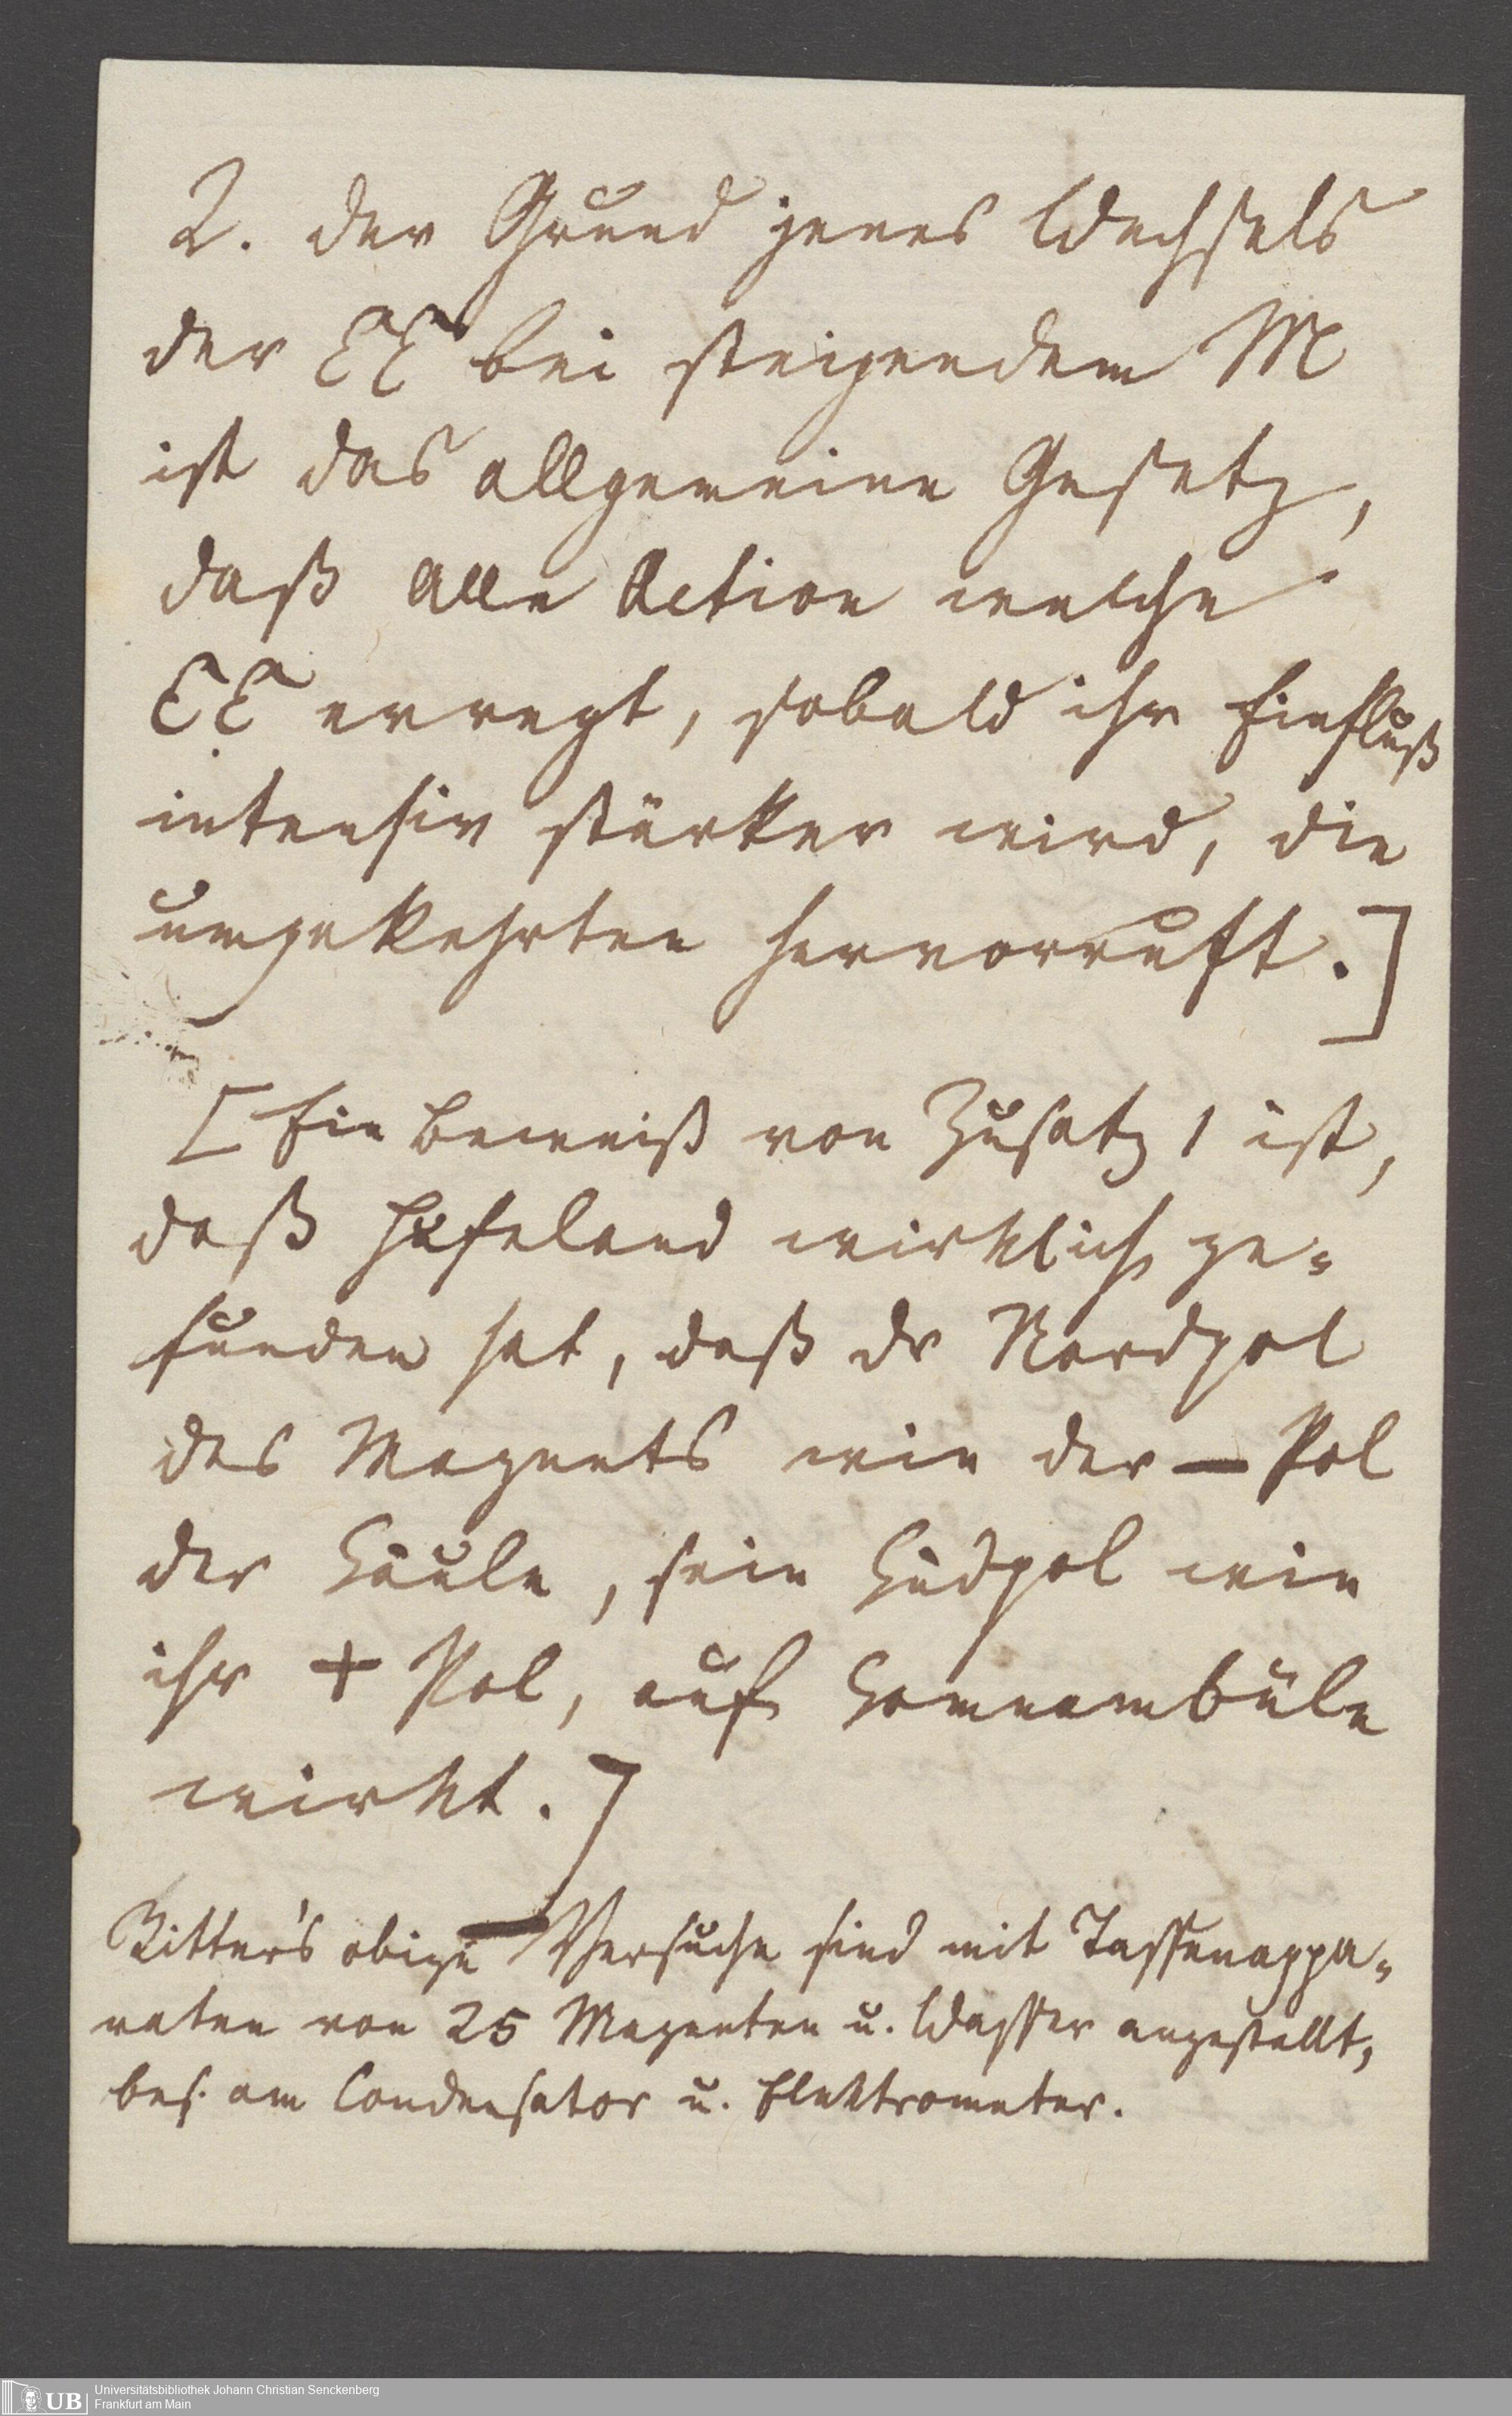 2. der Grund jenes Wechsels
der EE bei steigendem M
ist das allgemeine Gesetz,
daß alle Action welche
EE erregt, sobald ihr Einfluß
intensiv stärker wird, die
umgekehrten hervorruft.]
[Ein Beweniß von Zusatz 1 ist,
daß Hufeland wirklich ge-
funden hat, daß dr Nordpol
des Magnets wie der — Pol
der Säule, sein Südpol wie
ihr + Pol, auf Somnambüle
wirkt.]
Ritter's obige Versuche sind mit Tassenappa-
raten von 25 Magneten u. Wasser angestellt,
bes. am Condensator u. Elektrometer.
UB Universitätsbibliothek Johann Christian Senckenberg
Frankfurt am Main